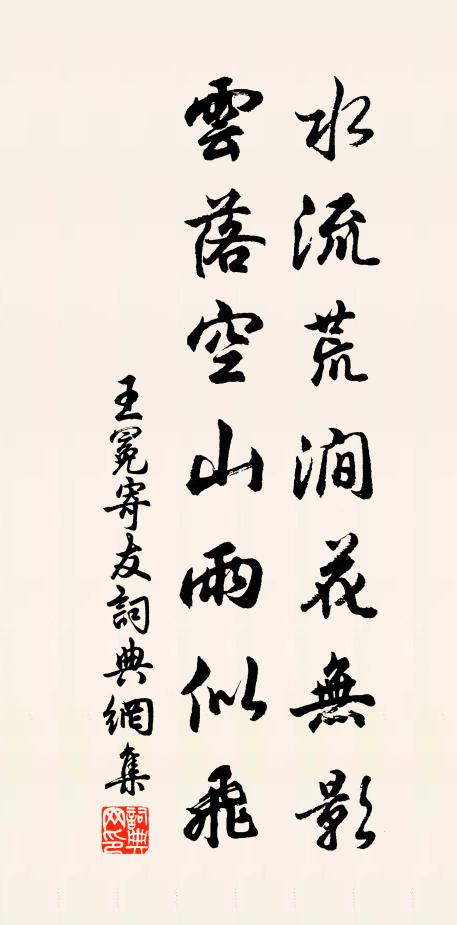 水流荒澗花無影
雲落空山雨似飛
王冕寄友詞典網集
詞典網印